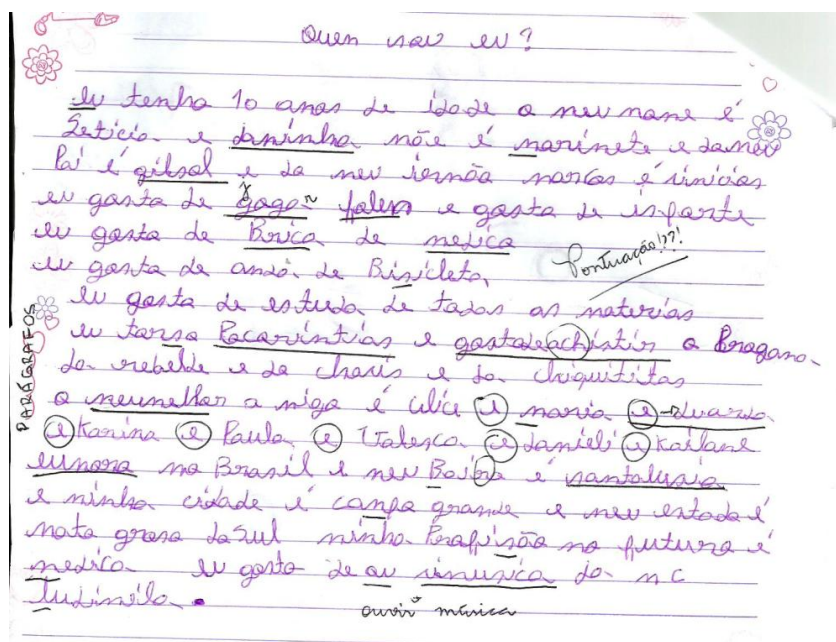 Quem sou eu?
eu tenho 10 anos de idade o meu nome é
Leticia e daminha mãe é marinete e do meu
Pai é gilsol e do meu iermão marcos é vinicios
eu gosto de gogar falen e gosto de isparte
eu gosto de Brica de medica
Pontuação!??!
eu gosto de andà de Bisicleta,
eu gosto de estuda de todas as materias
eu torso Pacarintias e gostodeachistir o Bragano.
da rebelde e da chavis e da chiquititas
PARÁGRAFOS
o meumelhor a miga é alice e maria e -duarda
e Karina e Paula e Valesca e danieli e Kailane
eumora no Brasil e meu Baira é santalusia
e minha cidade é campa grande e meu estado é
mato groso do Sul minha Profisão no futuro é
medica eu gosto de ou vimusica da mc
ludimila.
ouvir música